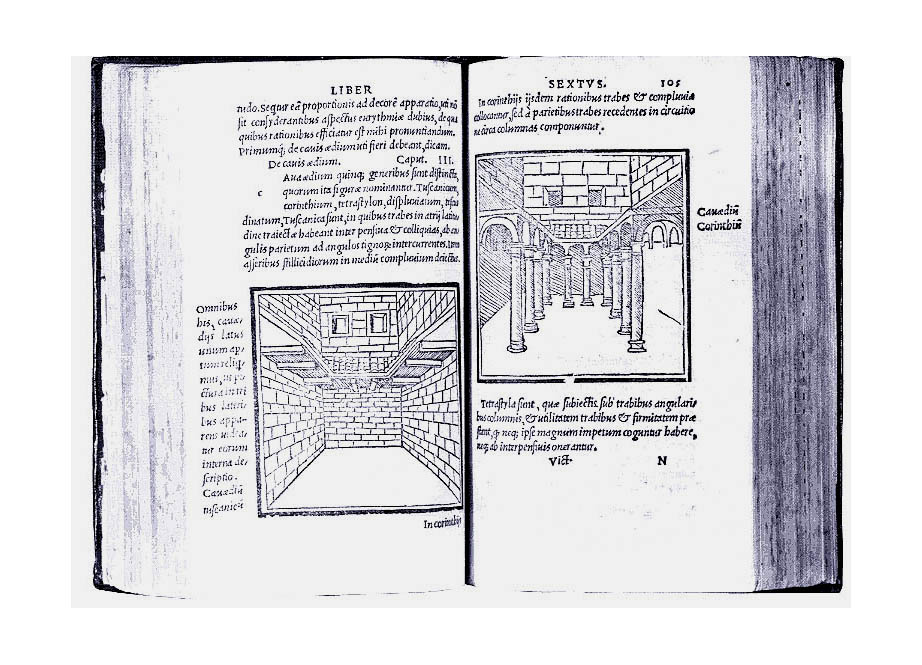 LIBER
tudo. Sequr eã proportionis ad decorẽ apparatio, uti nõ
sit consyderantibus aspectus eurythmiæ dubius, de qua
quibus rationibus efficiatur est mihi pronuntiandum.
Primumq; de cauis ædium uti fieri debeant, dicam.
De cauis ædium. Caput. III.
Auaædium quinq; generibus sunt distincta,
c quorum ita figuræ nominantur. Tuscanicum,
corinthium, tetrastylon, displuuiatum, testu
dinatum. Tuscanica sunt, in quibus trabes in atrij latitu
dine traiectæ habeant interpensiua & colliquias, ab an
gulis parietum ad angulos tignorũ intercurrentes. Item
asseribus stillicidiorum in mediũ compluuium deiectus.
Omnibus
his, cauæ
dijs latus
unum ap,
mui, in pi
ctura intri
bus lateri,
bus appa,
rens
tur eorum
interna de,
scriptio.
Cauædiũ
tuscanicũ
In corinthijs
SEXTVS. 105
In corinthijs ijsdem rationibus trabes & compluuia
collocantur, sed à parietibus trabes recedentes in circuitio
ne circa columnas componuntur.
Cauædiũ
Corinthiũ
Tetrastyla sunt, quæ subiectis sub trabibus angularis
bus columnis, & utilitatem trabibus & firmitatem præ
stant, q neq; ipsæ magnum impetum coguntur habere,
neq; ab interpensiuis onerantur.
Vict. N